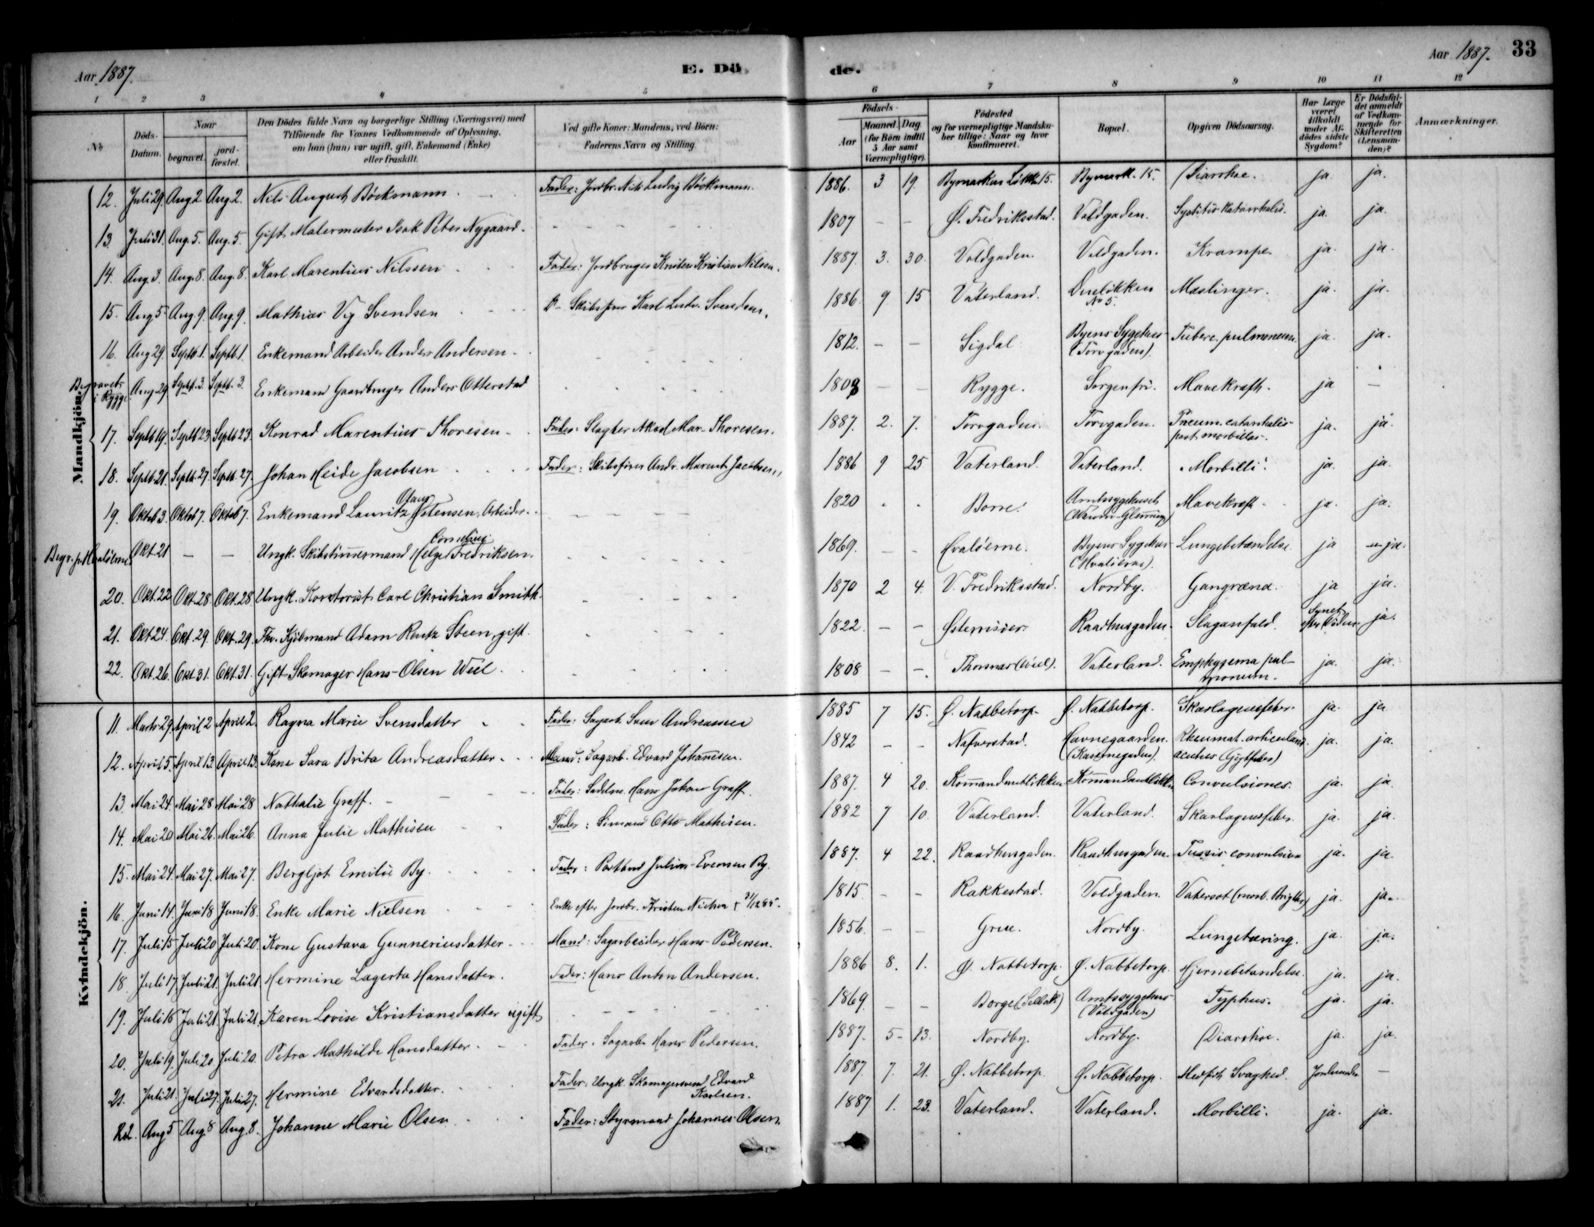 Aar 1887.
E. Dö
de.
Aar 1887.
33
1 2 3 4 5 6 7 8 9 10 11 12
No
Döds-Datum.
Naar
begravet.
jordfæstet.
Den Dödes fulde Navn og borgerlige Stilling (Næringsvei) med Tilföiende for Voxnes Vedkommende af Oplysning, om han (hun) var ugift, gift, Enkemand (Enke) eller fraskilt.
Ved gifte Koner: Mandens, ved Börn: Faderens Navn og Stilling.
Födsels-
Aar
Maaned. Dag.
(for Börn indtil 5 Aar samt Værnepligtige).
Födested og for værnepligtige Mandskaber tillige: Naar og hvor konfirmeret.
Bopæl.
Opgiven Dödsaarsag.
Har Læge været tilkaldt under Afdödes sidste Sygdom?
Er Dödsfaldet anmeldt af Vedkommende for Skifteretten (Lensmanden)?
Anmærkninger.
Mandkjön.
12. Juli 29 Aug 2 Aug 2. Nils August Böckmann Fader: Jordbr. Nils Ludvig Böckmann. 1886. 3 19. Bymarken Lökke 15. Bymark. 15. Diarrhoe. ja ja.
13. Juli 31. Aug. 5. Aug. 5. Gift Malermester Isak Peter Nygaard. 1807 – – Ø. Fredriksstad. Voldgaden. ja. ja.
14. Aug 3. Aug. 8. Aug. 8. Karl Marentius Nilssen Fader: Jordbruger Kristen Kristian Nilsen. 1887 3. 30. Voldgaden. Voldgaden. Krampe. ja. ja.
15. Aug 5 Aug 9 Aug 9. Mathias Vig Svendsen D– Skibsförer Karl Ludv. Svendsen. 1886. 9 15 Vaterland. Enelökken No 5. Mæslinger. ja. ja.
16. Aug 29. Septb 1. Septb. 1. Enkemand Arbeider Anders Andersen 1812. – – Sigdal Byens Sygehus (Torvgaden). Tuberc. pulmonum. ja. ja.
Begravet i Rygge Aug 29 Septb. 3 Septb. 3. Enkemand Gaardbruger Anders Otterstad 1808 – Rygge. Sorgenfri. Mavekræft. ja –
17. Septb 19. Septb 23 Septb 23. Konrad Marentius Thoresen Fader: Slagter Mar. Thoresen. 1887. 2. 7. Torvgaden. Torvgaden. Pneum. catarrhalis post. morbillos. ja. ja.
18. Septb 21. Septb. 27. Septb. 27. Johan Heide Jacobsen Fader: Skibsförer Andr. Marent. Jacobsen. 1886 9 25 Vaterland. Vaterland. Morbilli. ja. ja.
19. Oktb 3. Oktb 7. Oktb 7. Enkemand Lauritz Jensen, Arbeider. 1820 Borre. Amtssygehuset Mavekræft. ja. ja.
Okt 21 – – Ungk. Skibstömmermand Helge Cornelius Fredriksen. 1869. – Hvaløerne. Byens Sygehus (Hvaløerne). Lungebetændelse ja ja.
20. Okt. 22 Okt. 28 Okt. 28 Ungk. Carl Christian Smith. 1870 2 4. V. Fredriksstad. Nordby. Gangræna. ja ja.
21. Okt. 24. Okt. 29 Okt. 29. Fhv. Kjöbmand Adam Rentz Steen, gift. 1822. – – Østerrisöer. Raadhusgaden. Slaganfald. Synet efter Döden ja.
22. Okt. 26. Okt 31. Okt. 31. Gift Skomager Hans Olsen Wiel. 1808 – – Vaterland. Emphysema pulmonum. ja. ja.
Kvindekjön.
11. Marts 29 April 2 April 2. Ragna Marie Svensdatter Fader: Sagarb. Sven Andreassen 1885 7 15. Ø. Nabbetorp. Ø. Nabbetorp. Skarlagensfeber. ja. ja
12. April 5. April 13. April 13. Kone Sara Brita Andreasdatter Mand: Sagarb. Edvard Johannesen. 1842 – – Nafverstad. Havnegaarden (Kasernegaden). Rheumat. articulor. acutus (Gigtfeber) ja. ja.
13. Mai 24. Mai 28 Mai 28 Nathalie Graff. Fader: Sadelm. Hans Johan Graff. 1887. 4 20. Kommandantlökken Kommandantlökken Convulsiones ja. ja
14. Mai 20 Mai 26. Mai 26. Anna Julie Mathisen Fader: Sömand Otto Mathisen. 1882 7 10. Vaterland. Vaterland. Skarlagensfeber. ja. ja.
15. Mai 24. Mai 27. Mai 27. Bergljot Emilie By. Fader: Postbud Julius Evensen By. 1887. 4 22. Raadhusgaden. Raadhusgaden. Tussis convulsiva ja. ja
16. Juni 14. Juni 18 Juni 18. Enke Marie Nielsen Enke efter Jordbr. Kristen Nielsen 1815 – – Rakkestad. Voldgaden. Vatersot (morb. Brightii) ja. ja.
17. Juli 15 Juli 20 Juli 20. Kone Gustava Gunneriusdatter Mand: Sagarbeider Hans Pedersen. 1856. – – Grue. Nordby. Lungetæring. ja. ja.
18. Juli 17. Juli 21. Juli 21. Hermine Lagerta Hansdatter. Fader: Hans Anton Andersen. 1886 8. 1. Ø. Nabbetorp. Ø. Nabbetorp. Hjernebetændelse. ja. ja.
19. Juli 16 Juli 21. Juli 21. Karen Lovise Kristiansdatter ugift 1869 – – Borge (Selbak) Amtssygehus (Voldgaden) Typhus. ja. ja.
20. Juli 19. Juli 20 Juli 20. Petra Mathilde Hansdatter. Fader. Sagarb. Hans Pedersen. 1887. 5 13. Nordby. Nordby. Diarrhoe. ja. ja.
21. Juli 21. Juli 27. Juli 27. Hermine Edvardsdatter. Fader: Ungk. Skomagersvend Edvard Karlsen. 1887 7. 21. Ø. Nabbetorp. Ø. Nabbetorp. Medfödt Svaghed. Jordemoder –
22. Aug 5 Aug. 8 Aug. 8. Johanne Marie Olsen Fader: Styrmand Johannes Olsen 1887 1. 23. Vaterland. Vaterland. Morbilli. ja. ja.